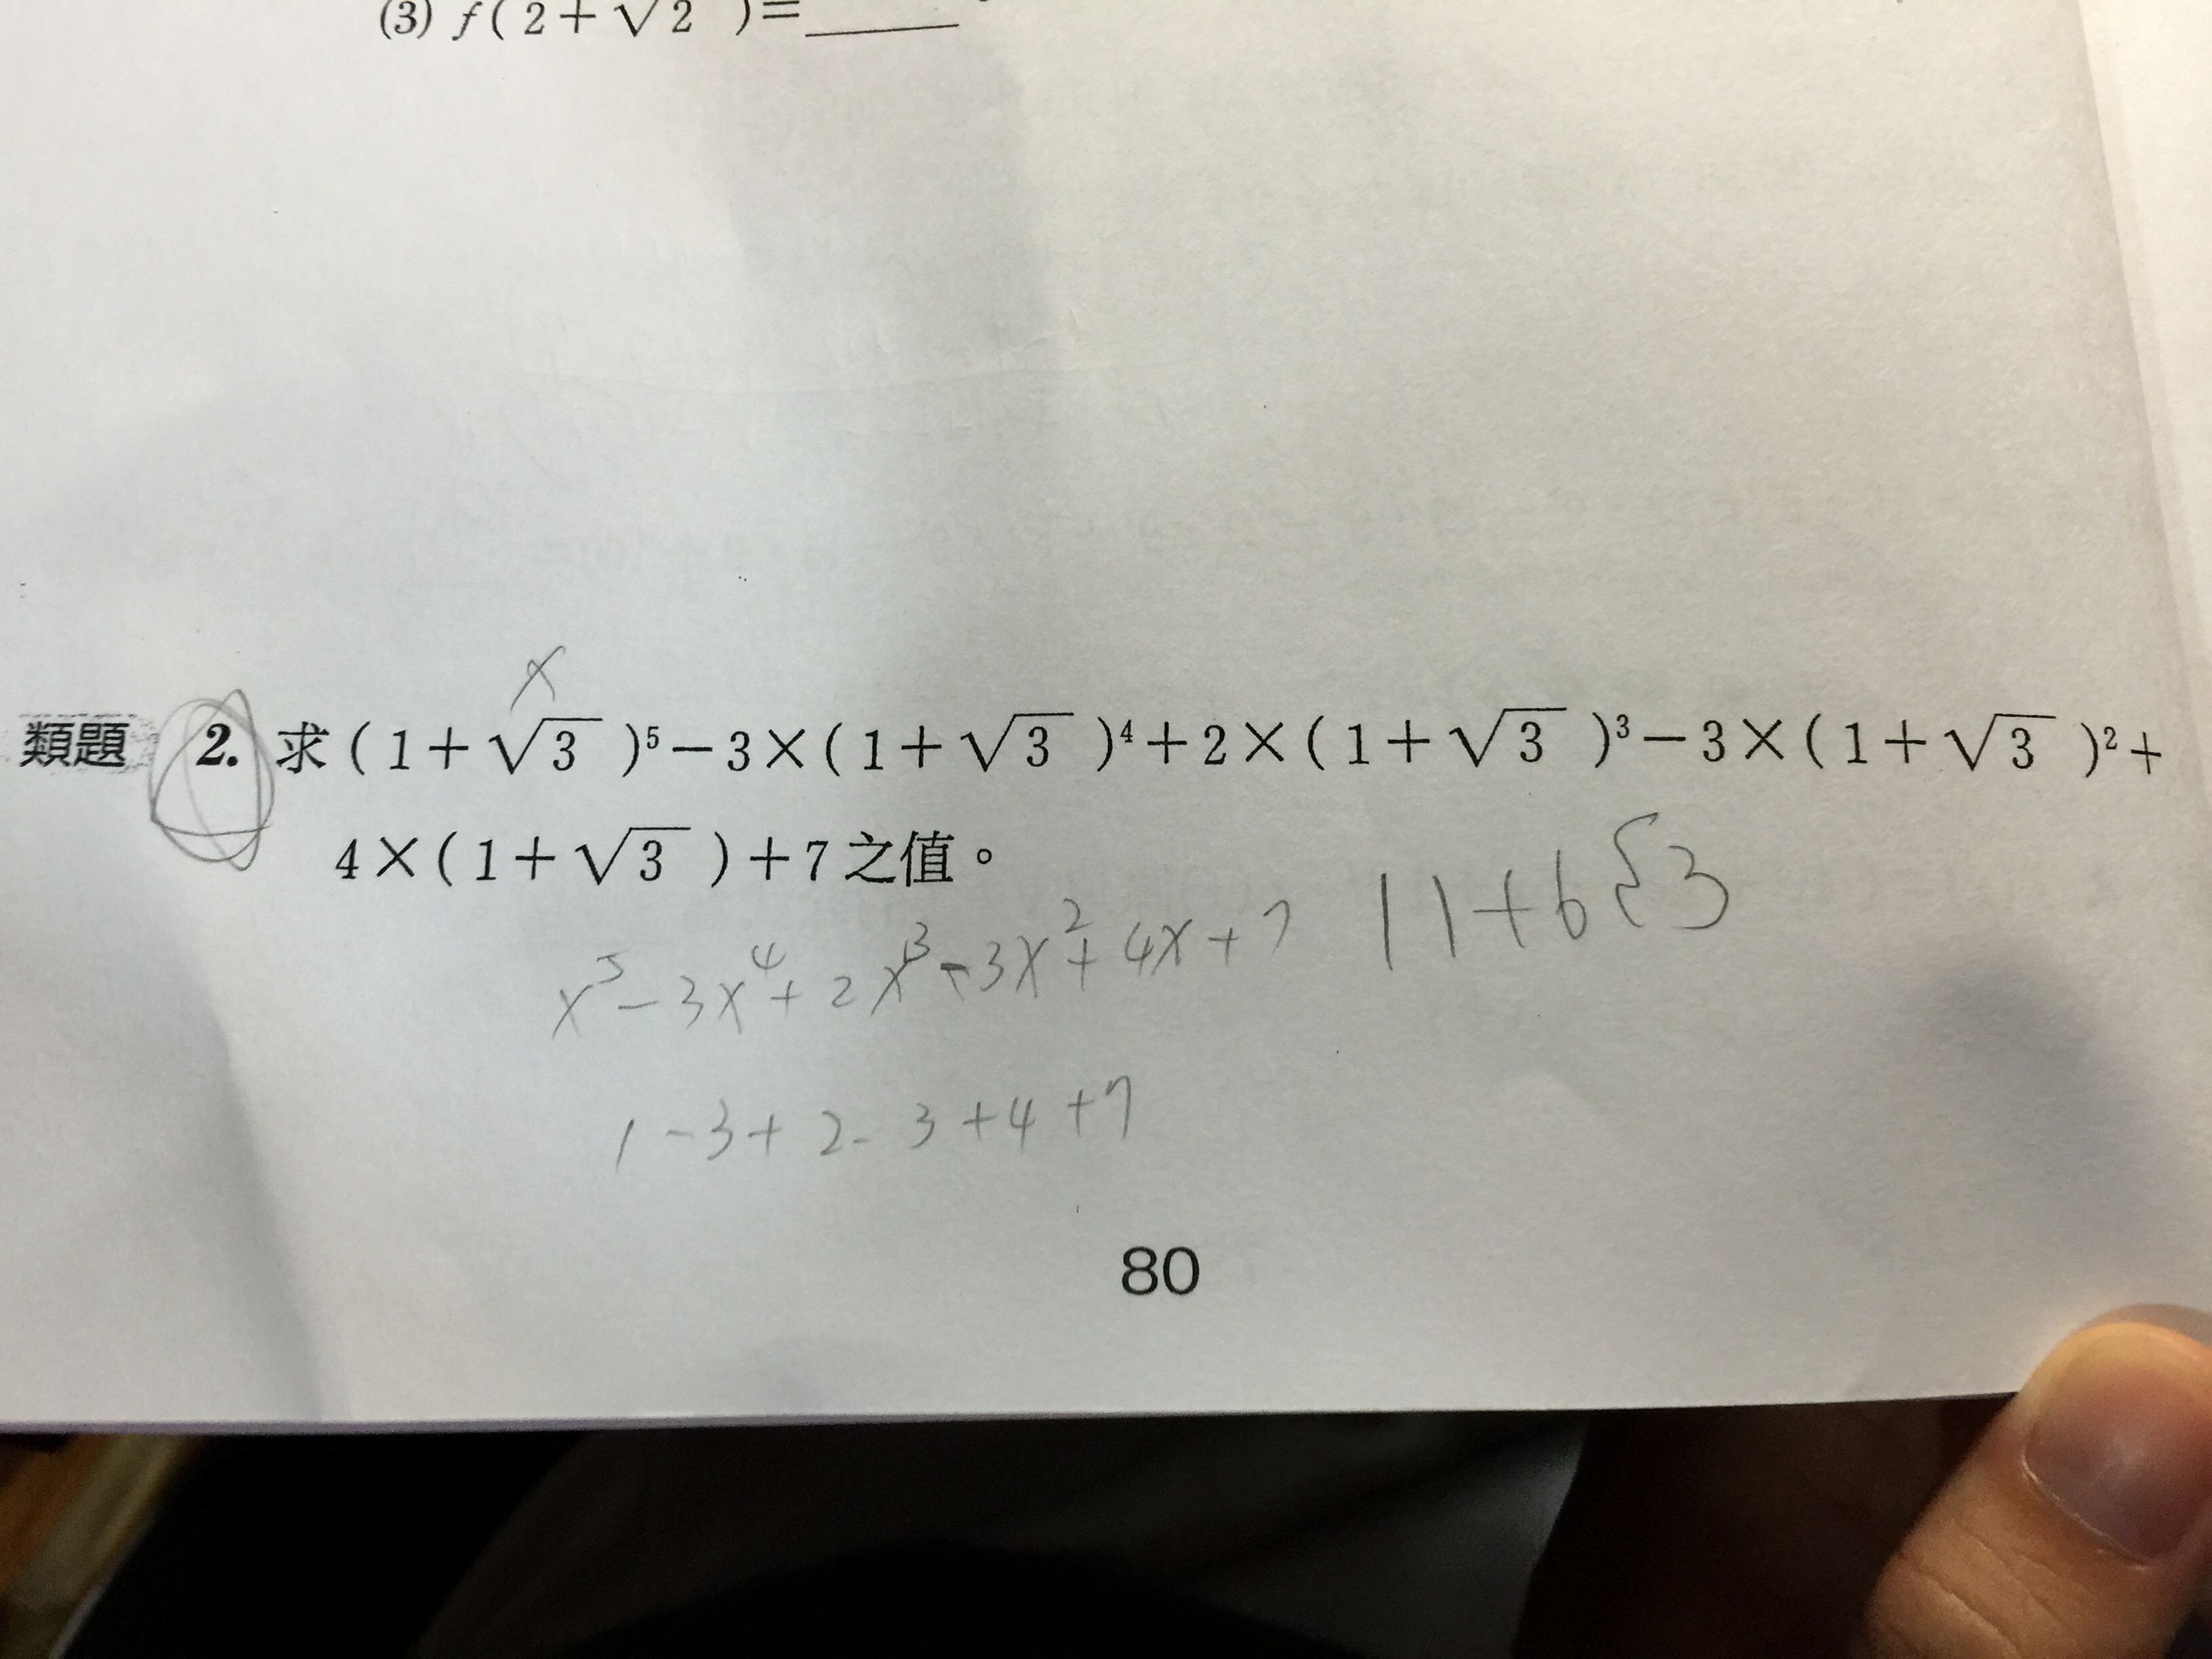 (3) f(2+√2)=____。
類題 2. 求(1+√3)⁵-3×(1+√3)⁴+2×(1+√3)³-3×(1+√3)²+
4×(1+√3)+7之值。
x
11+6√3
x⁵-3x⁴+2x³-3x²+4x+7
1-3+2-3+4+7
80